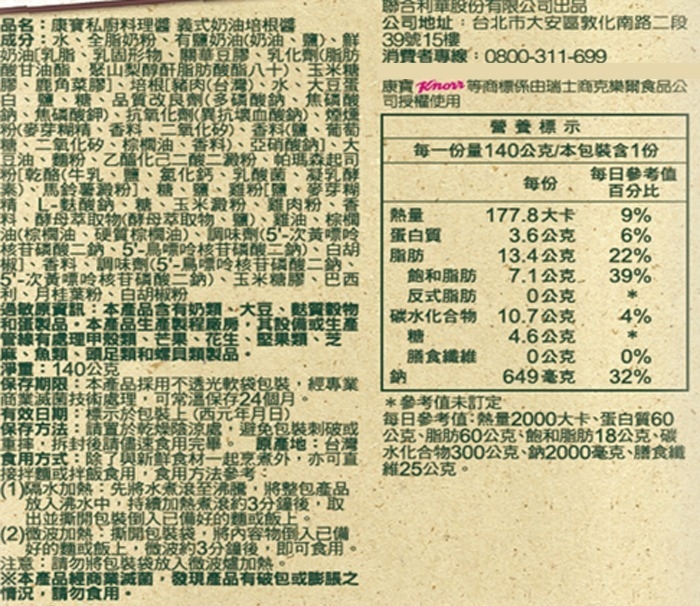 品名：康寶私廚料理醬 義式奶油培根醬
成分：水、全脂奶粉、有鹽奶油(奶油、鹽)、鮮
奶油[乳脂、乳固形物、關華豆膠、乳化劑(脂肪
酸甘油酯、聚山梨醇酐脂肪酸酯八十)、玉米糖
膠、鹿角菜膠]、培根[豬肉(台灣)、水、大豆蛋
白、鹽、糖、品質改良劑(多磷酸鈉、焦磷酸
鈉、焦磷酸鉀)、抗氧化劑(異抗壞血酸鈉)、煙燻
粉(麥芽糊精、香料、二氧化矽)、香料(鹽、葡萄
糖、二氧化矽、棕櫚油、香料)、亞硝酸鈉]、大
豆油、麵粉、乙醯化己二酸二澱粉、帕瑪森起司
粉[乾酪(牛乳、鹽、氯化鈣、乳酸菌、凝乳酵
素)、馬鈴薯澱粉]、糖、鹽、雞粉[鹽、麥芽糊
精、L-麩酸鈉、糖、玉米澱粉、雞肉粉、香
料、酵母萃取物(酵母萃取物、鹽)、雞油、棕櫚
油(棕櫚油、硬質棕櫚油)、調味劑(5'-次黃嘌呤
核苷磷酸二鈉、5'-鳥嘌呤核苷磷酸二鈉)、白胡
椒]、香料、調味劑(5'-鳥嘌呤核苷磷酸二鈉、
5'-次黃嘌呤核苷磷酸二鈉)、玉米糖膠、巴西
利、月桂葉粉、白胡椒粉
過敏原資訊：本產品含有奶類、大豆、麩質穀物
和蛋製品。本產品生產製程廠房，其設備或生產
管線有處理甲殼類、芒果、花生、堅果類、芝
麻、魚類、頭足類和螺貝類製品。
淨重：140公克
保存期限：本產品採用不透光軟袋包裝，經專業
商業滅菌技術處理，可常溫保存24個月。
有效日期：標示於包裝上(西元年月日)
保存方法：請置於乾燥陰涼處，避免包裝刺破或
重摔，拆封後請儘速食用完畢。 原產地：台灣
食用方式：除了與新鮮食材一起烹煮外，亦可直
接拌麵或拌飯食用，食用方法參考：
(1)隔水加熱：先將水煮滾至沸騰，將整包產品
放入沸水中，持續加熱煮滾約3分鐘後，取
出並撕開包裝倒入已備好的麵或飯上。
(2)微波加熱：撕開包裝袋，將內容物倒入已備
好的麵或飯上，微波約3分鐘後，即可食用。
注意：請勿將包裝袋放入微波爐加熱。
※本產品經商業滅菌，發現產品有破包或膨脹之
情況，請勿食用。
聯合利華股份有限公司出品
公司地址：台北市大安區敦化南路二段
39號15樓
消費者專線：0800-311-699
康寶 Knorr 等商標係由瑞士商克樂爾食品公
司授權使用
營養標示
每一份量140公克/本包裝含1份
每份 每日參考值百分比
熱量 177.8大卡 9%
蛋白質 3.6公克 6%
脂肪 13.4公克 22%
飽和脂肪 7.1公克 39%
反式脂肪 0公克 *
碳水化合物 10.7公克 4%
糖 4.6公克 *
膳食纖維 0公克 0%
鈉 649毫克 32%
＊參考值未訂定
每日參考值:熱量2000大卡、蛋白質60
公克、脂肪60公克、飽和脂肪18公克、碳
水化合物300公克、鈉2000毫克、膳食纖
維25公克。